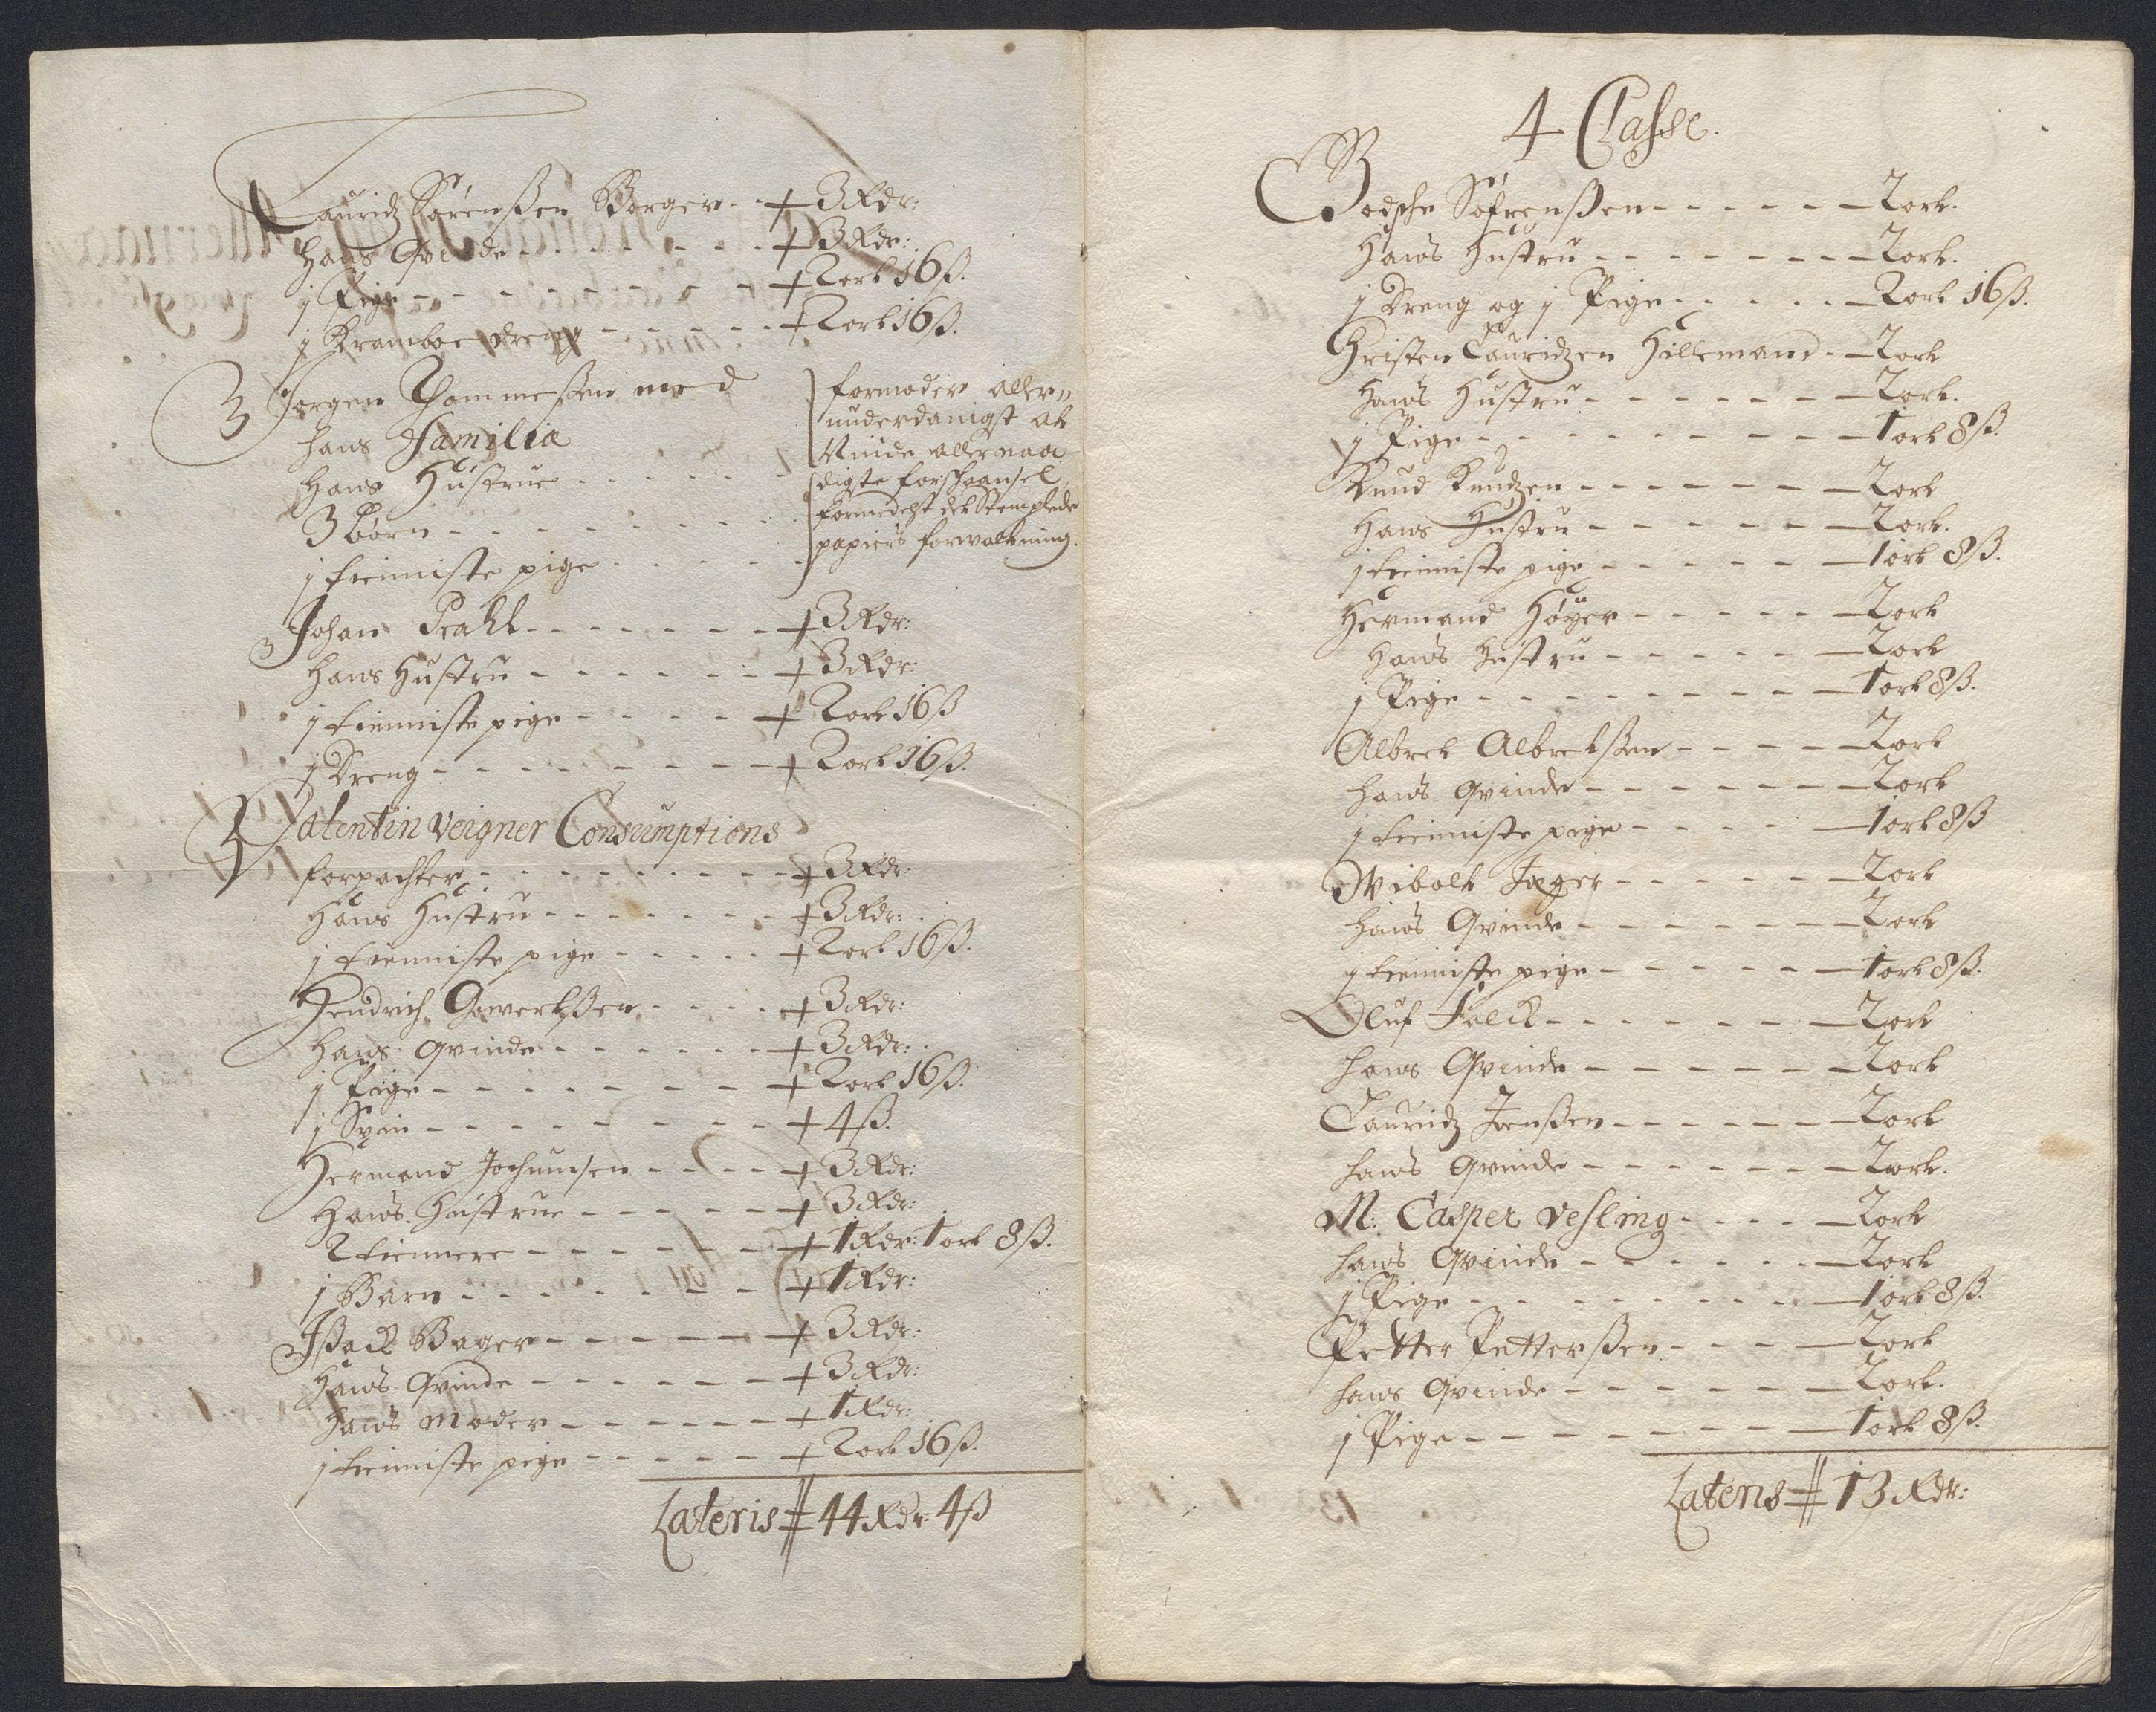 Lauridz Sørenßen Borger - - 3 Rdr:
Hans Qvinde - - - - - - 3 Rdr:
j Pige - - - - - - - 2 ort 16 ß.
j Kramboe dreng - - - - - 2 ort 16 ß.
3 Jørgen Thommeßen med
hans Familia
Hans Hustrue - - - - -
3 børn - - - - - - -
j tienniste pige - - - -
formoder aller„
underdanigst at
Niude allernaa
digste forschaansel
formedelst det Stemplede
papiers forvaltning.
3 Johan Prahl - - - - - - 3 Rdr:
Hans Hustru - - - - - - 3 Rdr:
j tienniste pige - - - - 2 ort 16 ß
j Dreng - - - - - - - 2 ort 16 ß.
3 Valentin Veigner Consumptions
forpachter - - - - - - - 3 Rdr:
Hans Hustru - - - - - - 3 Rdr:
j tienniste pige - - - - 2 ort 16 ß.
Hendrich Gwertßen - - - - 3 Rdr:
Hans Qvinde - - - - - - 3 Rdr:
j Pige - - - - - - - 2 ort 16 ß.
j Svin - - - - - - - 4 ß.
Hermand Jochumsen - - - - 3 Rdr:
Hans Hustrue - - - - - - 3 Rdr:
2 tiennere - - - - - - 1 Rdr: 1 ort 8 ß.
j Barn - - - - - - - 1 Rdr:
Jßack Bager - - - - - 3 Rdr:
Hans Qvinde - - - - - - 3 Rdr:
Hans Moder - - - - - - 1 Rdr:
j tienniste pige - - - - - 2 ort 16 ß.
Lateris 44 Rdr: 4 ß
4 Classe.
Godsche Søfrenßen - - - - - 2 ort.
Hans Hustru - - - - - - 2 ort.
j Dreng og j Pige - - - - 2 ort 16 ß.
Christen Lauridzen Hillemand - 2 ort
Hans Hustru - - - - - - 2 ort.
j Pige - - - - - - - 1 ort 8 ß.
Knud Knudzen - - - - - - 2 ort
Hans Hustru - - - - - - 2 ort.
j tienniste pige - - - - - 1 ort 8 ß.
Hermand Høyer - - - - - 2 ort
Hans Hustru - - - - - - 2 ort
j Pige - - - - - - - 1 ort 8 ß.
Albret Albretßen - - - - 2 ort
Hans Qvinde - - - - - - 2 ort
j tienniste pige - - - - 1 ort 8 ß
Wibolt Jæger - - - - - 2 ort
Hans Qvinde - - - - - - 2 ort
j tienniste pige - - - - - 1 ort 8 ß.
Oluf Falck - - - - - - 2 ort
Hans Qvinde - - - - - - 2 ort
Lauridz Jenßen - - - - - 2 ort
Hans Qvinde - - - - - - 2 ort.
M: Casper Vesling - - - - 2 ort
Hans Qvinde - - - - - - 2 ort
j Pige - - - - - - - 1 ort 8 ß.
Petter Petterßen - - - - 2 ort
Hans Qvinde - - - - - - 2 ort.
j Pige - - - - - - - 1 ort 8 ß.
Lateris 13 Rdr: